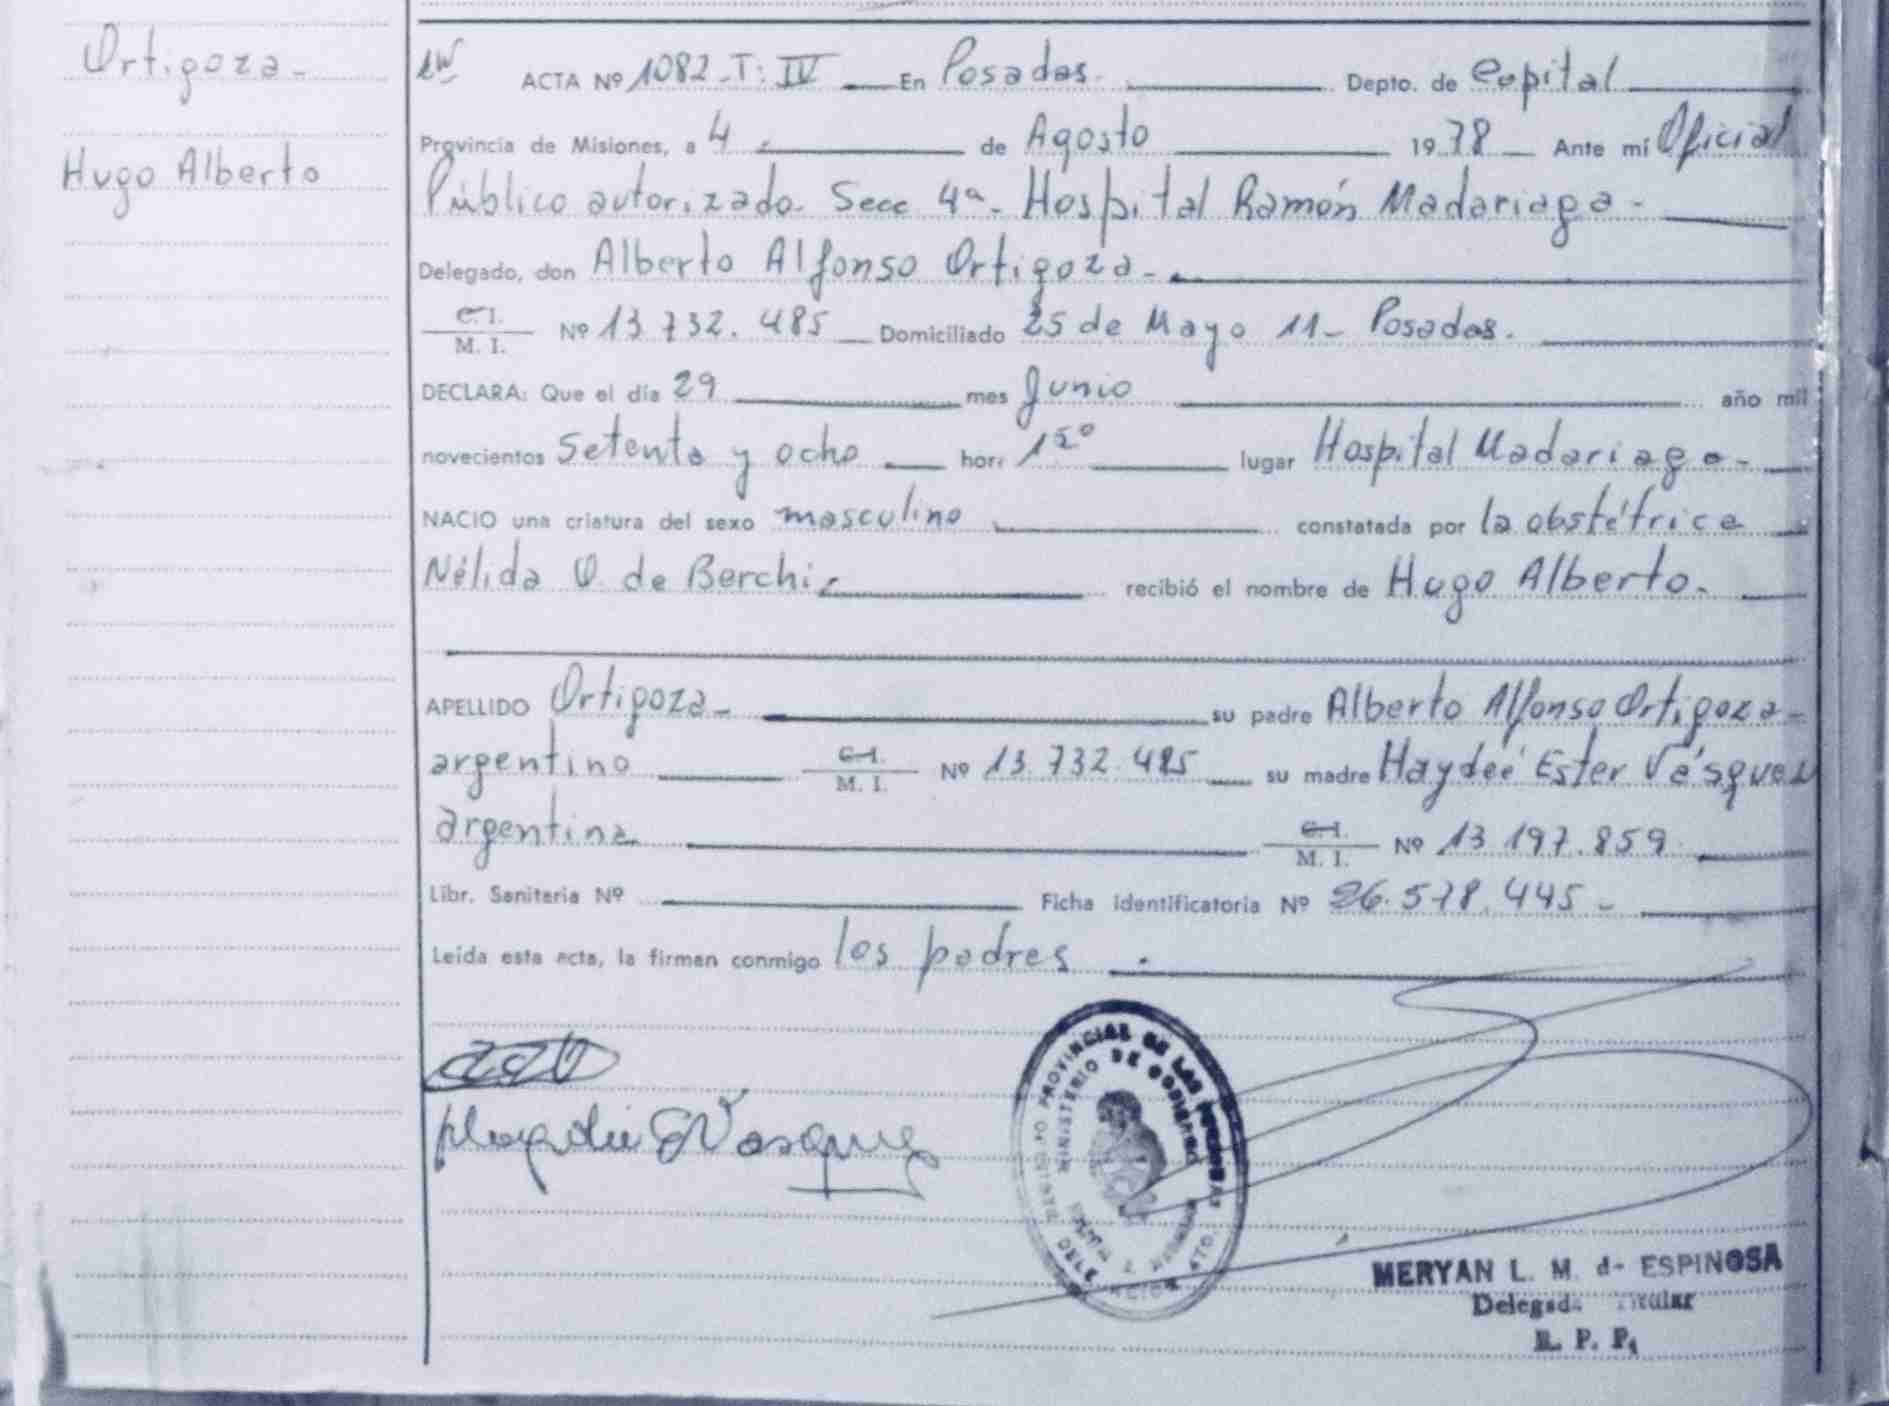 Ortigoza-
Hugo Alberto
ACTA Nº 1082-T: IV En Posadas. Depto. de Capital
Provincia de Misiones, a 4 de Agosto 1978 Ante mí Oficial
Público autorizado Secc 4ª- Hospital Ramón Madariaga-
Delegado, don Alberto Alfonso Ortigoza-
C. I.
M. I. Nº 13.732.485 Domiciliado 25 de Mayo 11- Posadas.
DECLARA: Que el día 29 mes Junio año mil
novecientos setenta y ocho hora lugar Hospital Madariaga-
NACIO una criatura del sexo masculino constatada por la obstétrica
Nélida O. de Berchi recibió el nombre de Hugo Alberto.
APELLIDO Ortigoza- su padre Alberto Alfonso Ortigoza-
argentino C. I. M. I. Nº 13.732.485 su madre Haydeé Ester Vásquez
argentina C. I. M. I. Nº 13.197.859
Libr. Sanitaria Nº Ficha identificatoria Nº 26.578.445-
Leída esta acta, la firman conmigo los padres.
Haydée E Vásquez
PROVINCIAL DE LAS PERSONAS
MINISTERIO DE GOBIERNO
MERYAN L. M. de ESPINOSA
Delegada Titular
R. P. P.